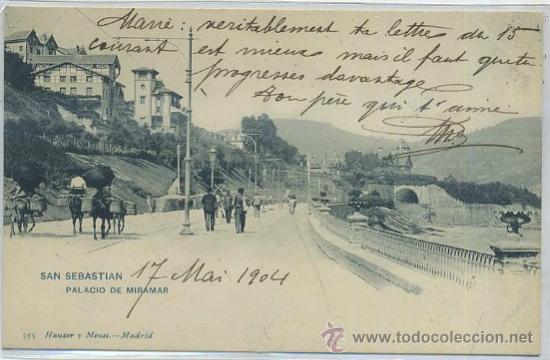 Marie: veritablement ta lettre du 15
courant est mieux mais il faut que tu
progresses davantage
Ton père qui t'aime
SAN SEBASTIAN
17 Mai 1904
PALACIO DE MIRAMAR
355 Hauser y Menet.—Madrid
todocoleccion
www.todocoleccion.net